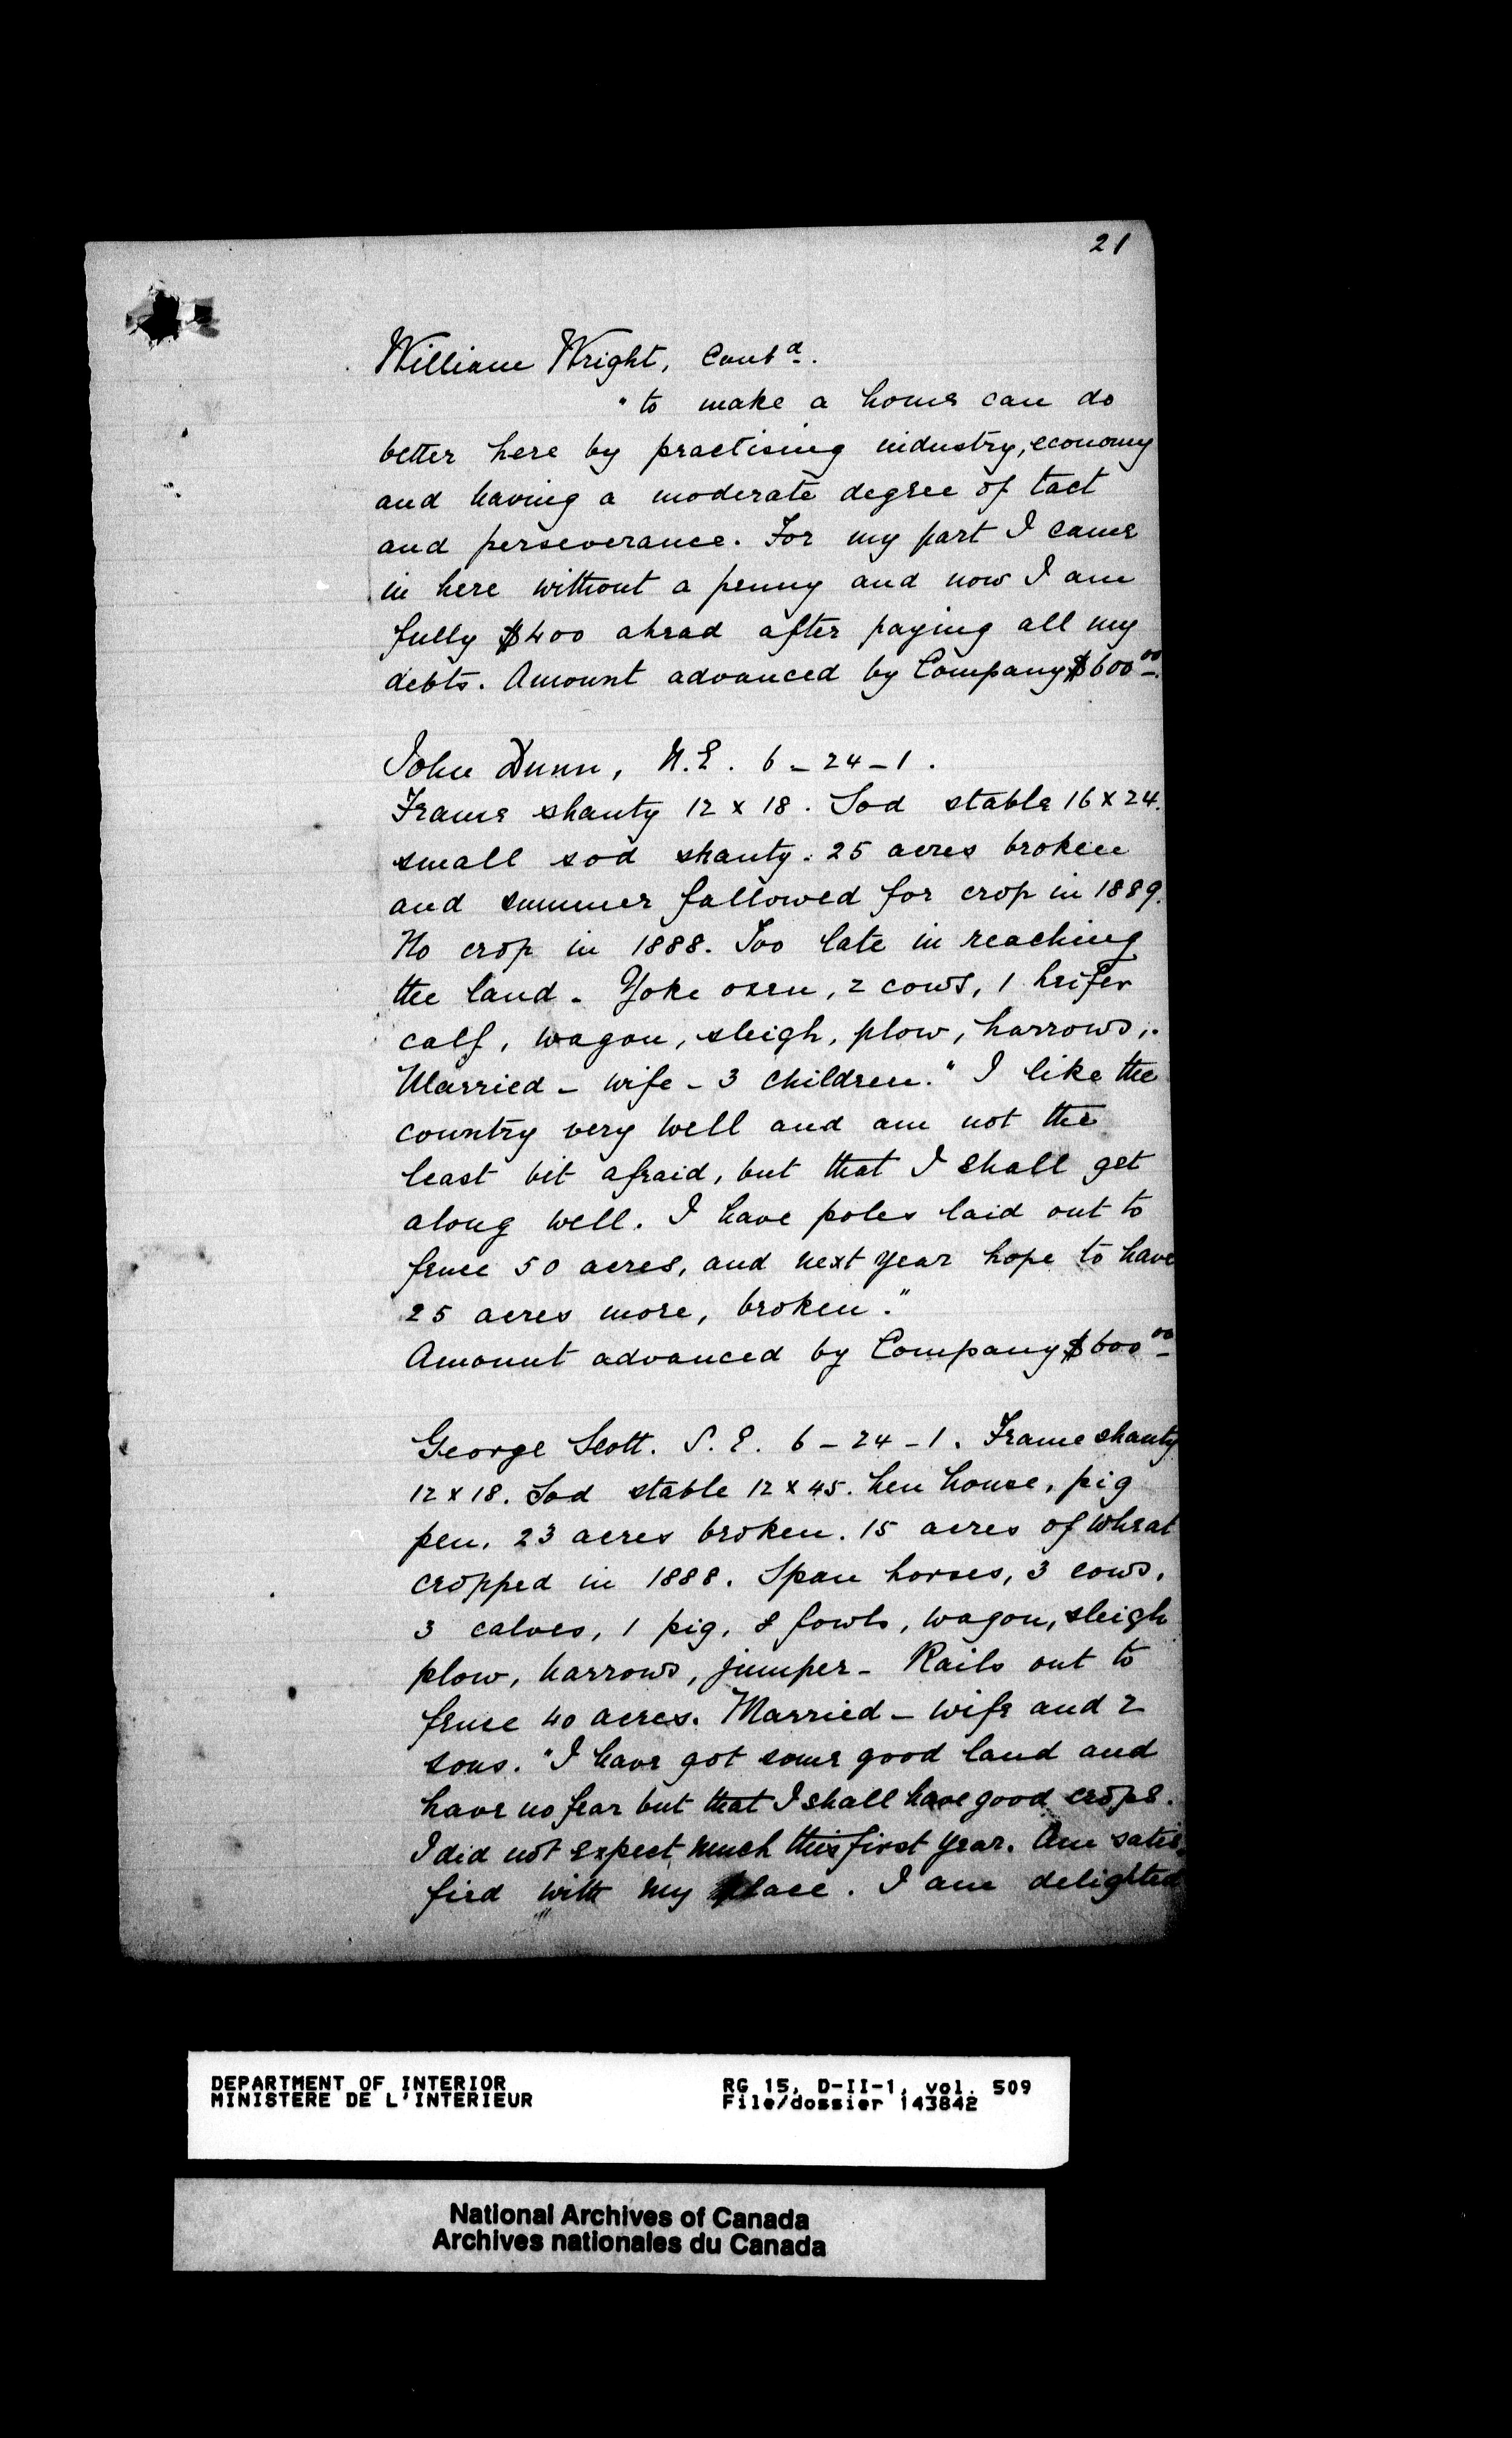 21
William Wright, Contd.
"to make a home can do
better here by practising industry, economy
and having a moderate degree of tact
and perseverance. For my part I came
in here without a penny and now I am
fully $400 ahead after paying all my
debts. Amount advanced by Company $600.00
John Dunn, N.E. 6-24-1.
Frame shanty 12 x 18. Sod stable 16 x 24.
small sod shanty. 25 acres broken
and summer fallowed for crop in 1889.
No crop in 1888. Too late in reaching
the land. Yoke oxen, 2 cows, 1 heifer
calf, wagon, sleigh, plow, harrows,.
Married - wife - 3 children. "I like the
country very well and am not the
least bit afraid, but that I shall get
along well. I have poles laid out to
fence 50 acres, and next year hope to have
25 acres more, broken."
Amount advanced by Company $600.00
George Scott. S.E. 6-24-1. Frame shanty
12 x 18. Sod stable 12 x 45. hen house, pig
pen. 23 acres broken. 15 acres of wheat
cropped in 1888. Span horses, 3 cows,
3 calves, 1 pig, 8 fowls, wagon, sleigh
plow, harrows, jumper - Rails out to
fence 40 acres. Married - wife and 2
sons. "I have got some good land and
have no fear but that I shall have good crops.
I did not expect much this first year. Am satis-
fied with my place. I am delighted
DEPARTMENT OF INTERIOR
MINISTERE DE L'INTERIEUR
RG 15, D-II-1, vol. 509
File/dossier 143842
National Archives of Canada
Archives nationales du Canada